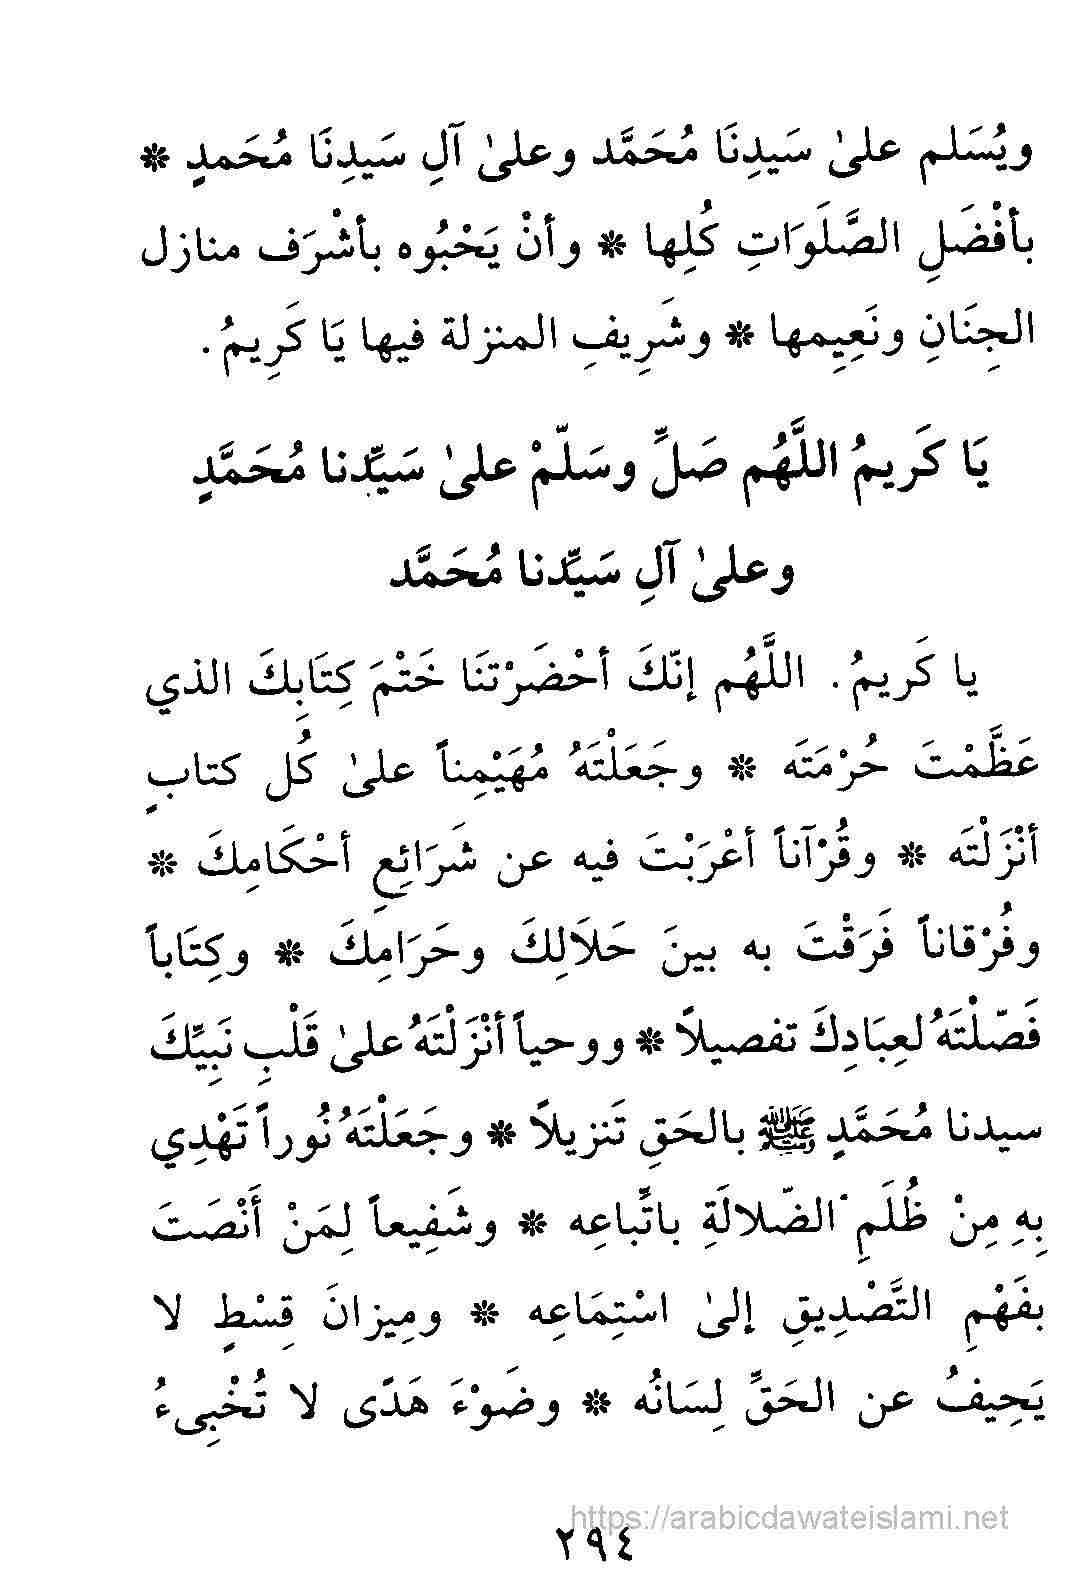 ويُسَلم علىٰ سَيدِنَا مُحَمَّد وعلىٰ آلِ سَيدِنَا مُحَمدٍ *
بأفْضَلِ الصَّلَوَاتِ كُلِها * وأنْ يَحْبُوه بأشْرَف منازل
الجِنَانِ ونَعِيمها * وشَرِيفِ المنزلة فيها يَا كَرِيمُ.
يَا كَرِيمُ اللَّهُم صَلِّ وسَلّمْ علىٰ سَيِّدنا مُحَمَّدٍ
وعلىٰ آلِ سَيِّدنا مُحَمَّد
يا كَرِيمُ. اللَّهُم إنّكَ أحْضَرْتنَا خَتْمَ كِتَابِكَ الذي
عَظَّمْتَ حُرْمَتَه * وجَعَلْتَهُ مُهَيْمِناً علىٰ كُل كتابٍ
أنْزَلْتَه * وقُرْآناً أعْرَبْتَ فيه عن شَرَائِعِ أحْكَامِكَ *
وفُرْقاناً فَرَقْتَ به بينَ حَلَالِكَ وحَرَامِكَ * وكِتَاباً
فَصّلْتَهُ لعِبَادِكَ تفصيلاً * ووحياً أنْزَلْتَهُ علىٰ قَلْبِ نَبِيِّكَ
سيدنا مُحَمَّدٍ ﷺ بالحَقِ تَنزيلاً * وجَعَلْتَهُ نُوراً تَهْدِي
بِهِ مِنْ ظُلَمِ الضّلالَةِ باتِّباعِه * وشَفِيعاً لِمَنْ أَنْصَتَ
بفَهْمِ التَّصْدِيقِ إلىٰ اسْتِمَاعِه * ومِيزانَ قِسْطٍ لا
يَحِيفُ عن الحَقِّ لِسَانُه * وضَوْءَ هَدًى لا تُخْبِىءُ
https://arabicdawateislami.net
٢٩٤